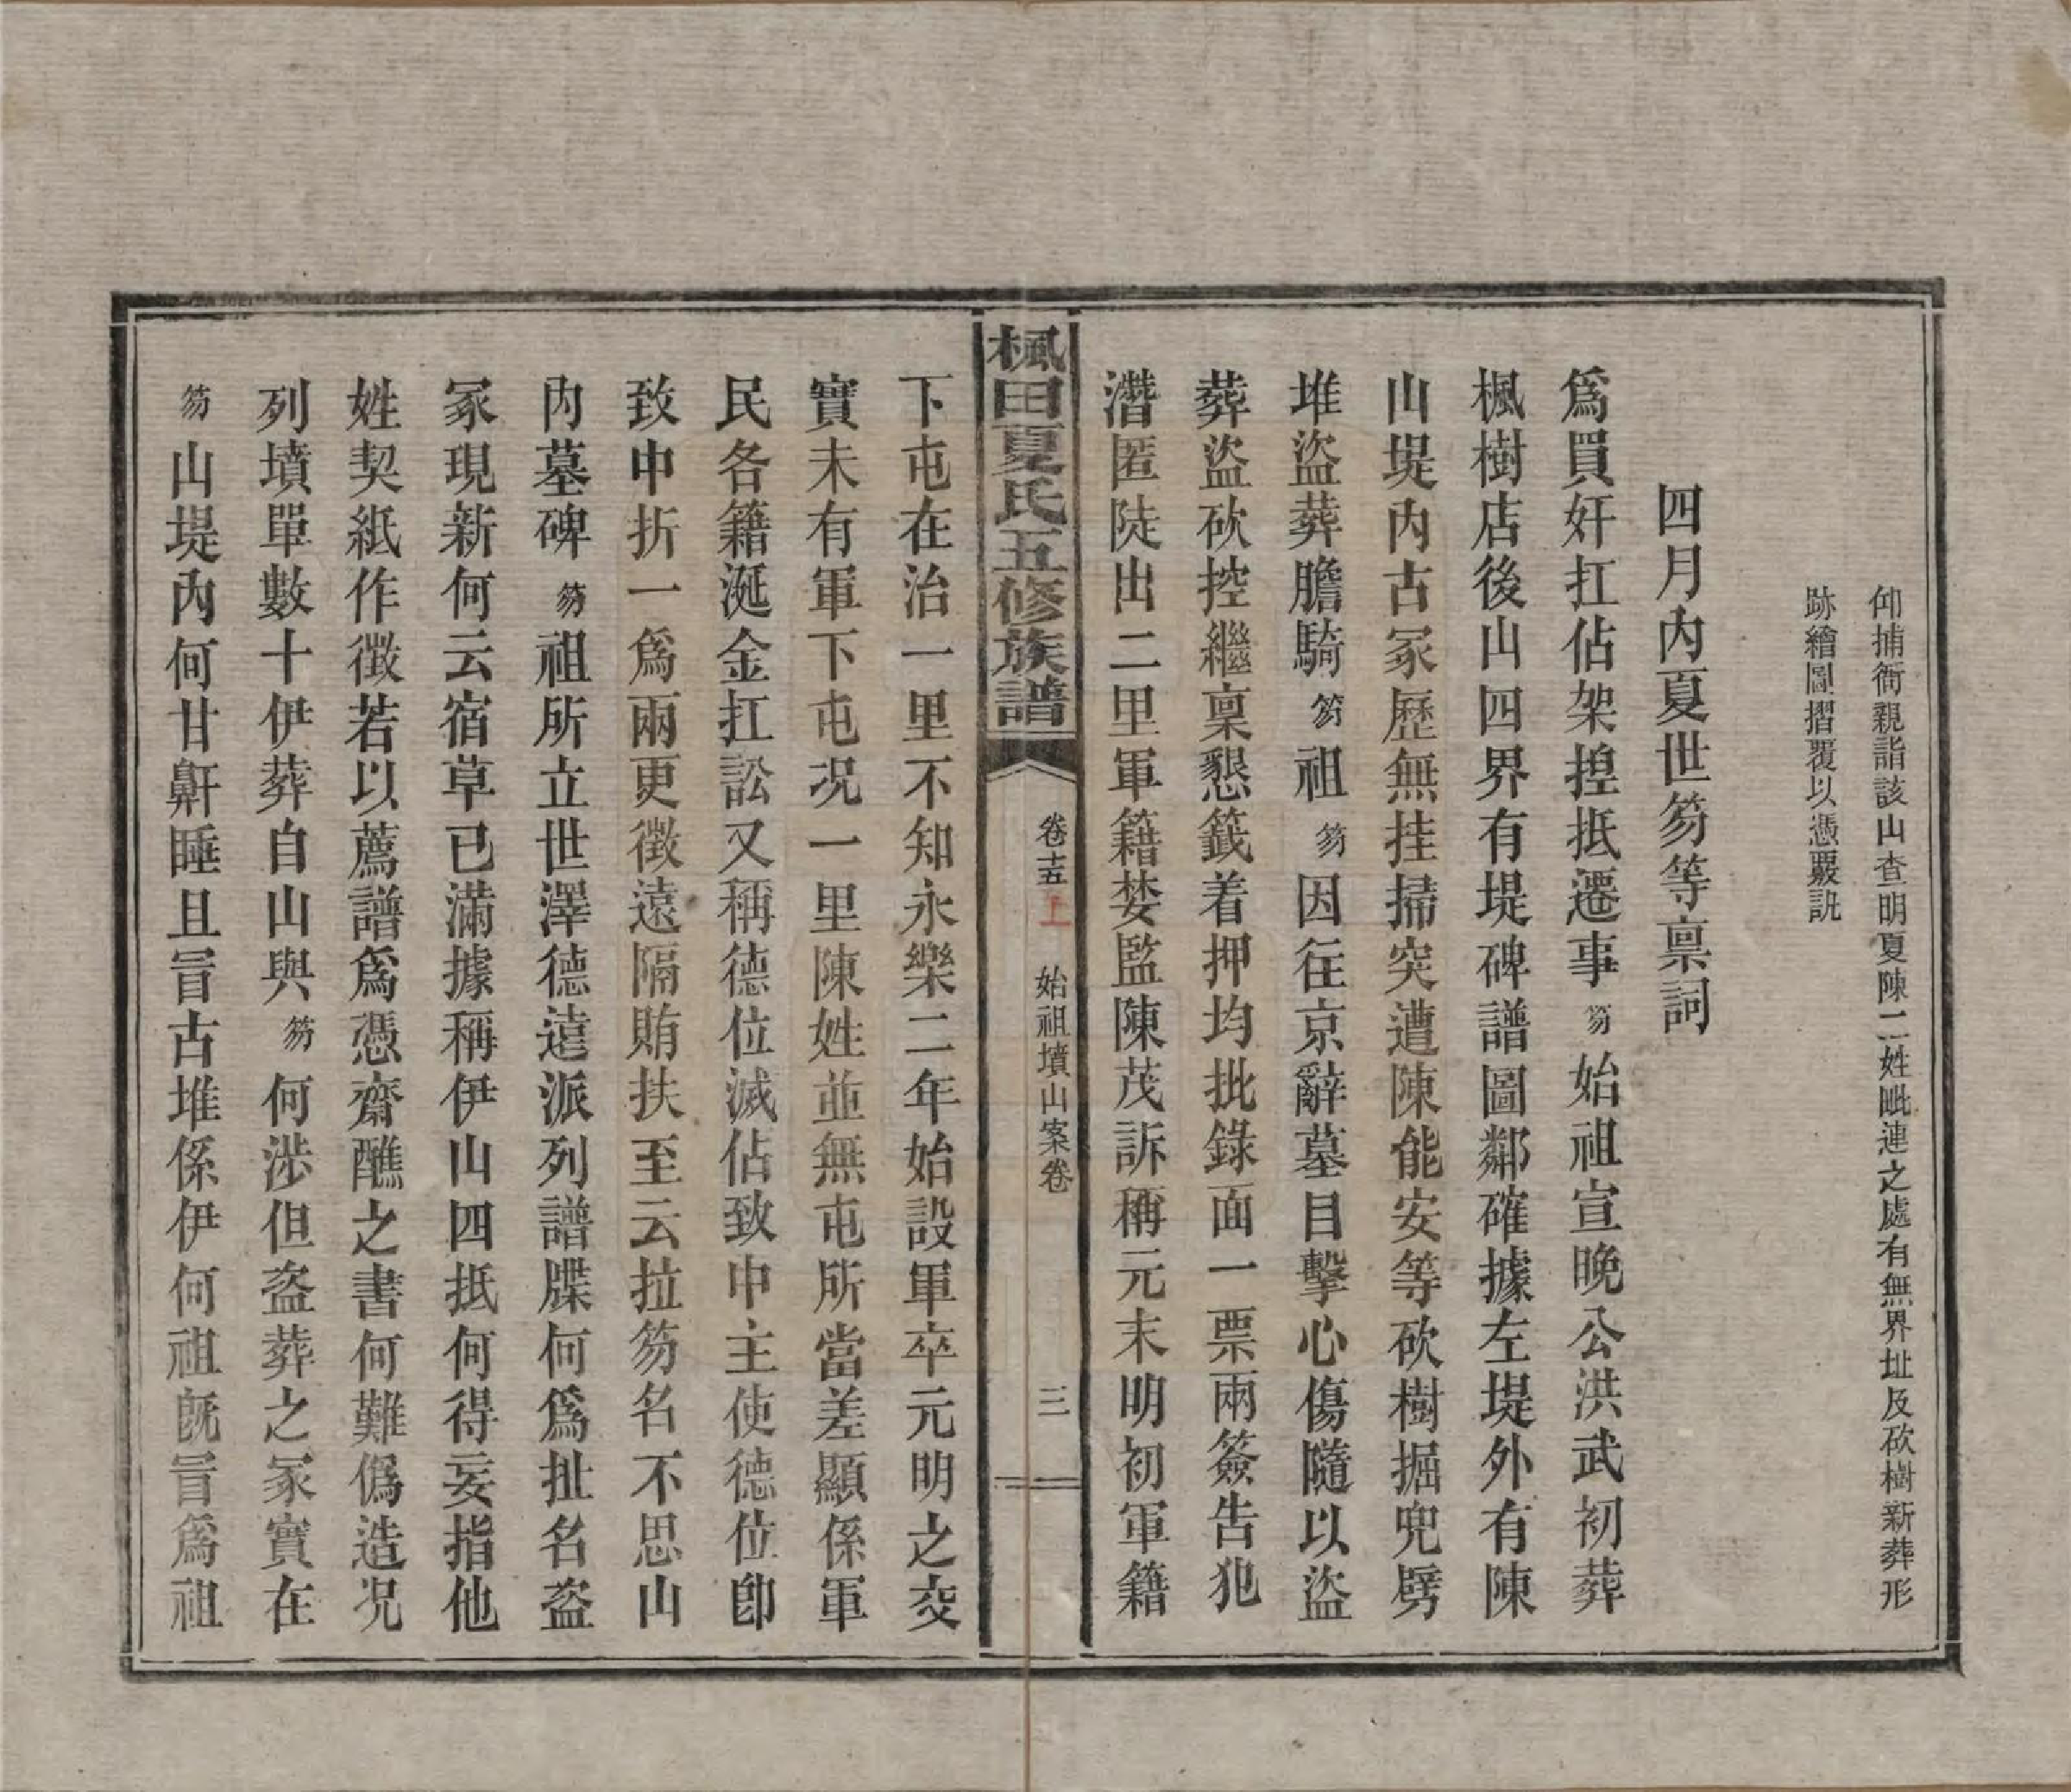 仰捕衙親詣該山查明夏陳二姓毗連之處有無界址及砍樹新葬形
跡繪圖摺覆以憑覈訊
四月內夏世笏等禀詞
爲買奸扛佔架揑抵遷事笏始祖宣晚公洪武初葬
楓樹店後山四界有堤碑譜圖鄰確據左堤外有陳
山堤內古冢歷無挂掃突遭陳能安等砍樹掘兜劈
堆盜葬膽騎笏祖笏因往京辭墓目擊心傷隨以盜
葬盜砍控繼稟懇籤着押均批錄面一票兩簽告犯
潛匿陡出二里軍籍婪監陳茂訴稱元末明初軍籍
楓田夏氏五修族譜
卷十五上
始祖墳山案卷
三
下屯在治一里不知永樂二年始設軍卒元明之交
實未有軍下屯况一里陳姓並無屯所當差顯係軍
民各籍涎金扛訟又稱德位滅佔致中主使德位卽
致中折一爲兩更徵遠隔賄扶至云拉笏名不思山
內墓碑笏祖所立世澤德遠派列譜牒何爲扯名盜
冢現新何云宿草已滿據稱伊山四抵何得妄指他
姓契紙作徵若以薦譜爲憑齋醮之書何難僞造况
列墳單數十伊葬自山與笏何涉但盜葬之冢實在
笏山堤內何甘鼾睡且冒古堆係伊何祖旣冒爲祖